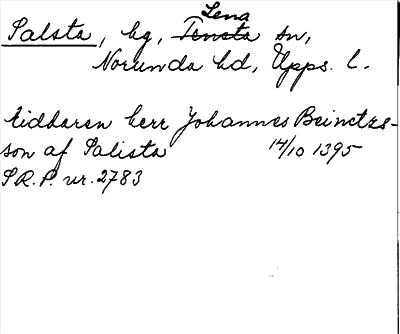 Salsta, by, Lena sn,
Norunda hd, Upps. l.
tidbaren herr Johannes Beinctes-
son af Salista 14/10 1395
S.R.P. nr. 2783